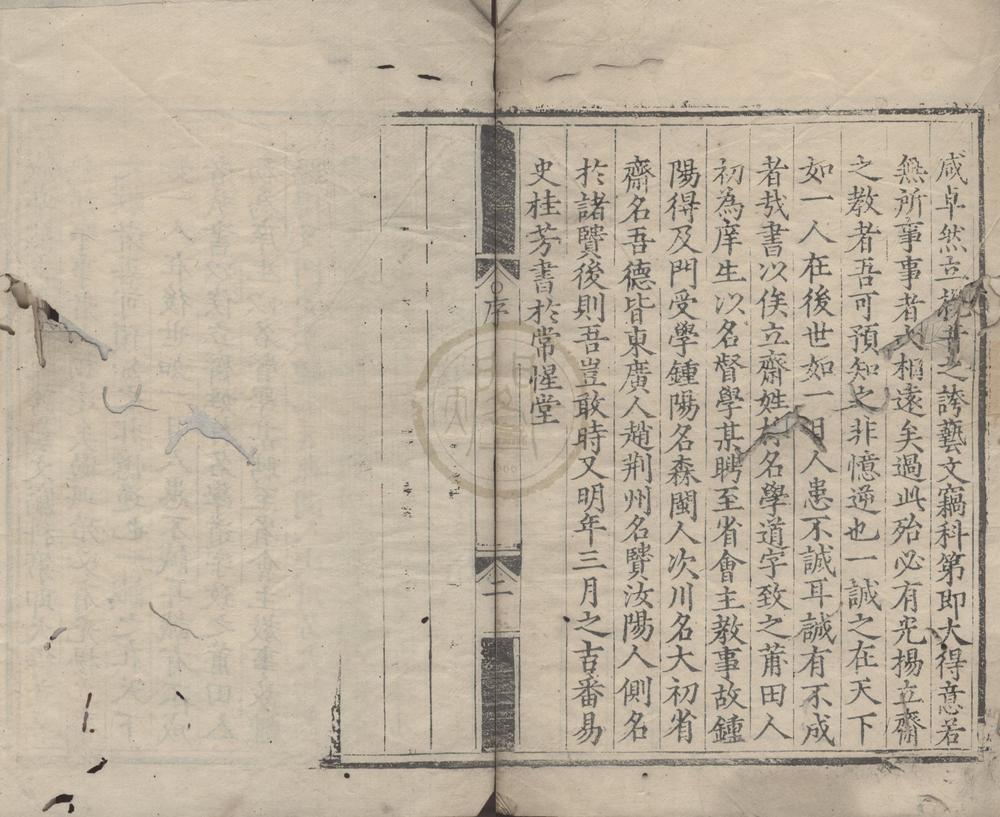 咸卓然立於世之誇藝文竊科第即大得意若
無所事事者大相遠矣過此殆必有光揚立齋
之教者吾可預知之非憶逆也一誠之在天下
如一人在後世如一日人患不誠耳誠有不成
者哉書以俟立齋姓林名學道字致之莆田人
初為庠生以名督學某聘至省會主教事故鍾
陽得及門受學鍾陽名森閩人次川名大初省
齋名吾德皆東廣人趙荆州名賢汝陽人側名
於諸賢後則吾豈敢時又明年三月之吉番易
史桂芳書於常惺堂
序
二